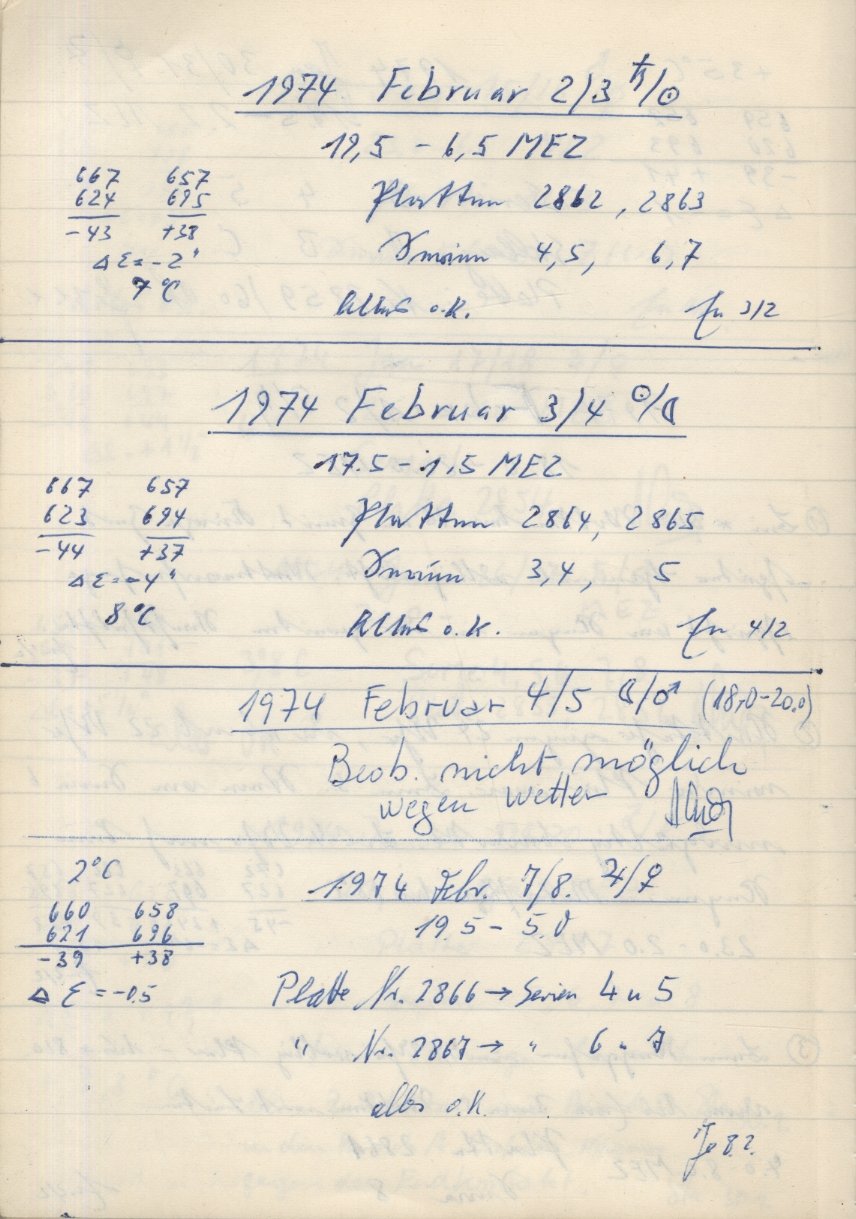 1974 Februar 2/3 ♄/☉
19,5 - 6,5 MEZ
667 657
624 695
-43 +38
Δ Ɛ = -2"
7°C
Platten 2862, 2863
Serien 4,5, 6,7
Alles o.K. 3/2
1974 Februar 3/4 ☉/☾
17.5 - 1,5 MEZ
667 657
623 694
-44 +37
Δ Ɛ = -4"
8°C
Platten 2864, 2865
Serien 3,4, 5
Alles o.K. 4/2
1974 Februar 4/5 ☾/♂ (18,0-20.0)
Beob. nicht möglich
wegen Wetter
2°C
660 658
621 696
-39 +38
Δ Ɛ = -0.5
1974 Febr. 7/8. ♃/♀
19.5 - 5.0
Platte Nr. 2866 → Serien 4 u 5
" Nr. 2867 → " 6 u 7
alles o.K.
8.2.